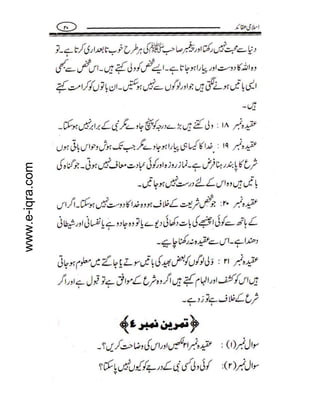 اسلامی عقائد
۲۰
دنیا سے محبت نہیں رکھتا اور پیغمبر صاحب ﷺ کی ہر طرح خوب تابعداری کرتا ہے۔ تو
وہ اللہ کا دوست اور پیارا ہو جاتا ہے۔ ایسے شخص کو ولی کہتے ہیں۔ اس شخص سے کبھی
ایسی باتیں ہونے لگتی ہیں جو اور لوگوں سے نہیں ہو سکتیں۔ ان باتوں کو کرامت کہتے
ہیں۔
عقیدہ نمبر ۱۸ : ولی کتنے ہی بڑے درجہ کو پہنچ جاوے مگر نبی کے برابر نہیں ہو سکتا۔
عقیدہ نمبر ۱۹ : خدا کا کیسا ہی پیارا ہو جاوے مگر جب تک ہوش و حواس باقی ہوں
شرع کا پابند رہنا فرض ہے۔ نماز روزہ اور کوئی عبادت معاف نہیں ہوتی۔ جو گناہ کی
باتیں ہیں وہ اس کے لئے درست نہیں ہو جاتیں۔
عقیدہ نمبر ۲۰: جو شخص شریعت کے خلاف ہو وہ خدا کا دوست نہیں ہو سکتا۔ اگر اس
کے ہاتھ سے کوئی اچنبھے کی بات دکھائی دیوے یا تو وہ جادو ہے یا نفسانی اور شیطانی
دھندا ہے۔ اس سے عقیدہ نہ رکھنا چاہیے۔
عقیدہ نمبر ۲۱ : ولی لوگوں کو بعض بھید کی باتیں سوتے یا جاگتے میں معلوم ہو جاتی
ہیں اس کو کشف اور الہام کہتے ہیں اگر وہ شرع کے موافق ہے تو قبول ہے اور اگر
شرع کے خلاف ہے تو رد ہے۔
﴿تمرین نمبر ٤﴾
سوال نمبر (۱) : عقیدہ نمبر ۲۱ لکھیں اور اس کی وضاحت کریں؟۔
سوال نمبر (۲): کوئی ولی کسی نبی کے درجے کو کیوں نہیں پا سکتا؟
www.e-iqra.com